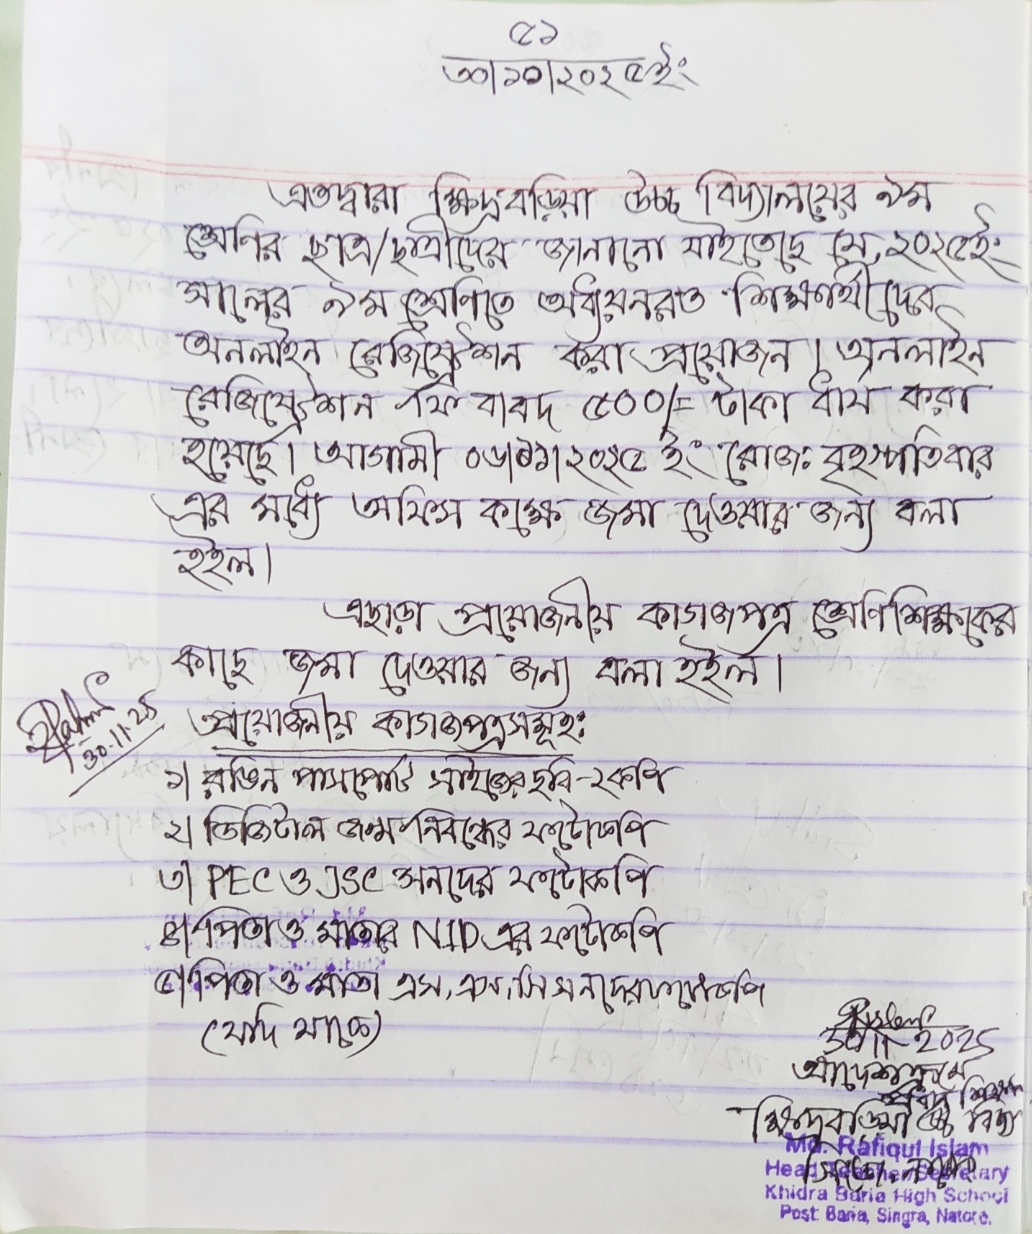 ৫১
৩০|১০|২০২৫ইং
এতদ্বারা ক্ষিদ্রবড়িয়া উচ্চ বিদ্যালয়ের ৯ম
শ্রেণির ছাত্র/ছাত্রীদের জানানো যাইতেছে যে, ২০২৫ইং
সালের ৯ম শ্রেণিতে অধ্যয়নরত শিক্ষার্থীদের
অনলাইন রেজিস্ট্রেশন করা প্রয়োজন। অনলাইন
রেজিস্ট্রেশন ফি বাবদ ৫০০/= টাকা ধার্য করা
হয়েছে। আগামী ০৬|১১|২০২৫ ইং রোজঃ বৃহস্পতিবার
এর মধ্যে অফিস কক্ষে জমা দেওয়ার জন্য বলা
হইল।
এছাড়া প্রয়োজনীয় কাগজপত্র শ্রেণিশিক্ষকের
কাছে জমা দেওয়ার জন্য বলা হইল।
30.11.25
প্রয়োজনীয় কাগজপত্রসমূহঃ
১| রঙিন পাসপোর্ট সাইজের ছবি-২কপি
২| ডিজিটাল জন্মনিবন্ধের ফটোকপি
৩| PEC ও JSC সনদের ফটোকপি
৪| পিতা ও মাতার NID এর ফটোকপি
৫| পিতা ও মাতা এস,এস,সি সনদের ফটোকপি
(যদি থাকে)
30-11-2025
আদেশক্রমে
প্রধান শিক্ষক
ক্ষিদ্রবড়িয়া উচ্চ বিদ্যা
সিংড়া, নাটোর
Md. Rafiqul Islam
Head Teacher Secretary
Khidra Baria High School
Post: Baria, Singra, Natore.